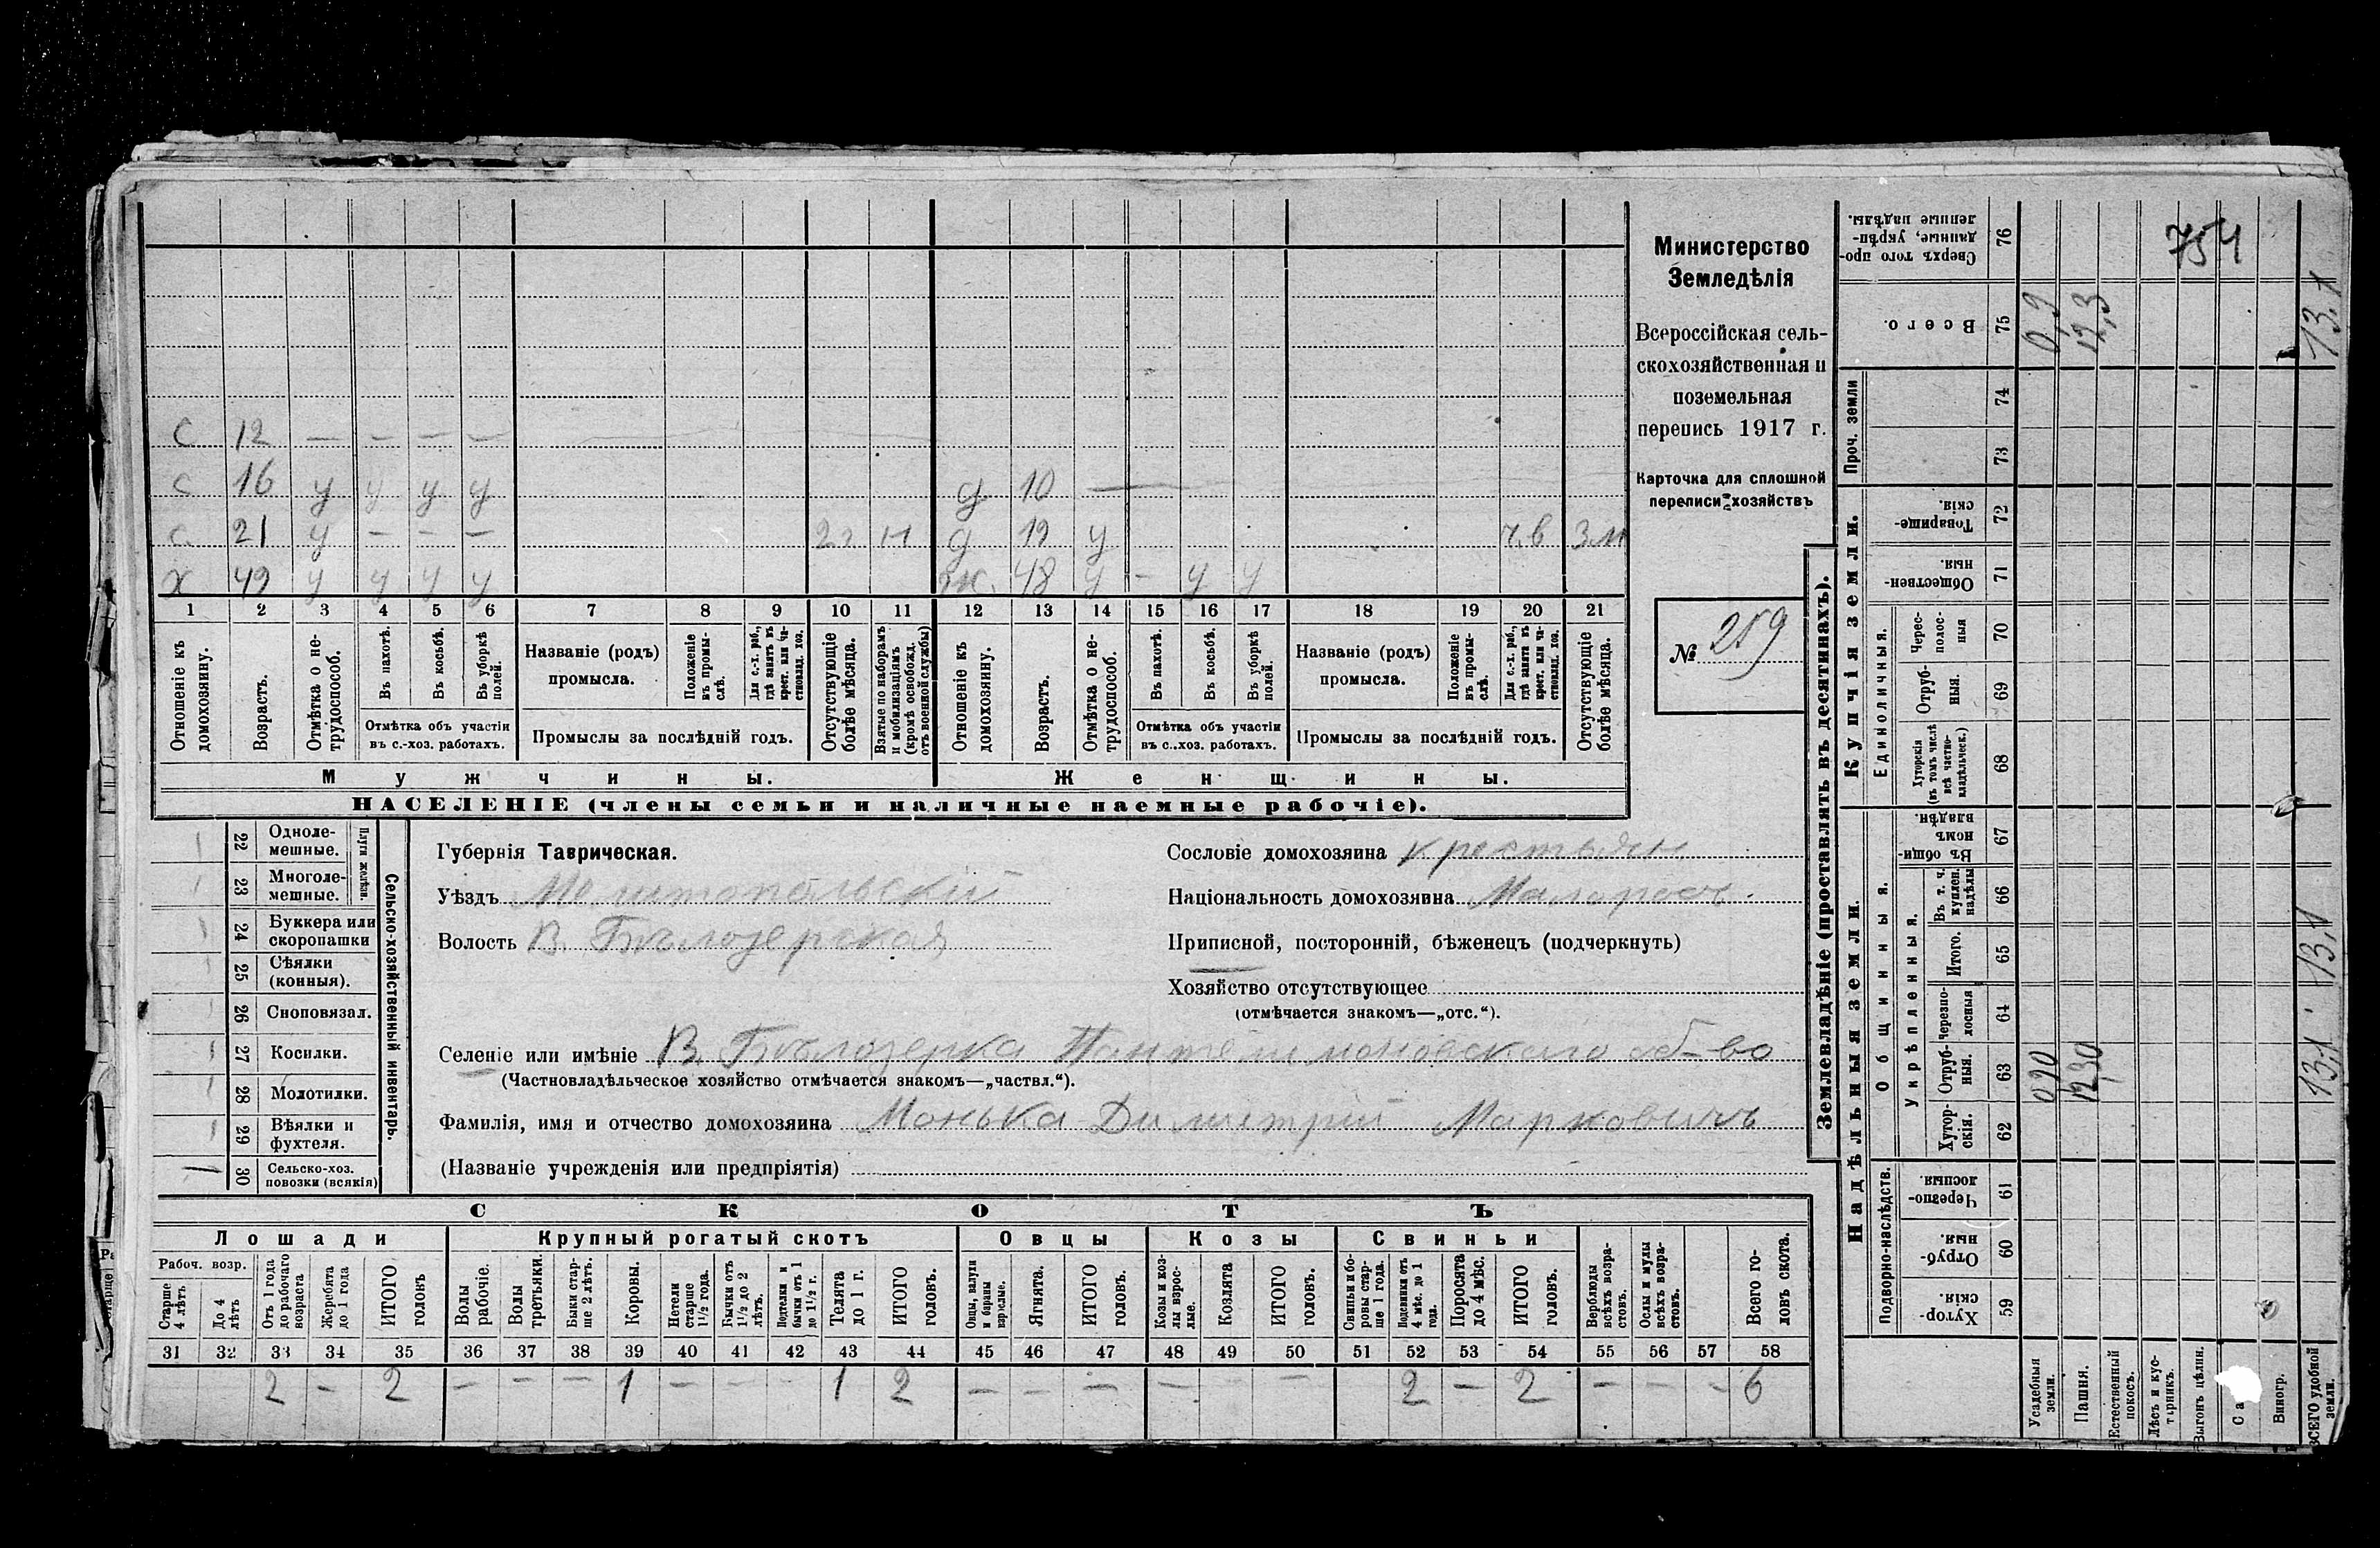 754
Министерство
Земледѣлія
Всероссійская сель-
скохозяйственная и
поземельная
перепись 1917 г.
Карточка для сплошной
переписи хозяйствъ
№ 259
с 12 — — — —
с 16 у у у у д 10 —
с 21 у — — — 2г н д 19 у ч.в 3м
х 49 у у у у ж. 48 у — у у
1 2 3 4 5 6 7 8 9 10 11 12 13 14 15 16 17 18 19 20 21
Отношеніе къ домохозяину.
Возрастъ.
Отмѣтка о не-трудоспособ.
Въ пахотѣ.
Въ косьбѣ.
Въ уборкѣ полей.
Отмѣтка объ участіи
въ с.-хоз. работахъ.
Названіе (родъ)
промысла.
Положеніе въ промы-слѣ.
Для с.-х. раб., гдѣ занятъ въ крест. или ча-стновлад. хоз.
Промыслы за послѣдній годъ.
Отсутствующіе болѣе мѣсяца.
Взятые по наборамъ и мобилизаціямъ (кромѣ освобожд. отъ военной службы)
Отношеніе къ домохозяину.
Возрастъ.
Отмѣтка о не-трудоспособ.
Въ пахотѣ.
Въ косьбѣ.
Въ уборкѣ полей.
Отмѣтка объ участіи
въ с..хоз. работахъ.
Названіе (родъ)
промысла.
Положеніе въ промы-слѣ.
Для с.-х. раб., гдѣ занята въ крест. или ча-стновлад. хоз.
Промыслы за послѣдній годъ.
Отсутствующіе болѣе мѣсяца.
Мужчины.
Женщины.
НАСЕЛЕНІЕ (члены семьи и наличные наемные рабочіе).
Сельско-хозяйственный инвентарь.
Плуги желѣзн.
1 22 Одноле-мешные.
1 23 Многоле-мешные.
24 Буккера или скоропашки
1 25 Сѣялки (конныя).
26 Сноповязал.
1 27 Косилки.
1 28 Молотилки.
1 29 Вѣялки и фухтеля.
1 30 Сельско-хоз. повозки (всякія)
Губернія Таврическая.
Уѣздъ Мелитопольскій
Волость В. Бѣлозерская
Сословіе домохозяина крестьян
Національность домохозяина Малоросс.
Приписной, посторонній, бѣженецъ (подчеркнуть)
Хозяйство отсутствующее
(отмѣчается знакомъ—„отс.“).
Селеніе или имѣніе В. Бѣлозерка Пантелимоновскаго об-во
(Частновладѣльческое хозяйство отмѣчается знакомъ—„частвл.“).
Фамилія, имя и отчество домохозяина Монька Димитрій Марковичъ
(Названіе учрежденія или предпріятія)
СКОТЪ
Лошади Крупный рогатый скотъ Овцы Козы Свиньи
Рабоч. возр.
Старше 4 лѣтъ
До 4 лѣтъ
Отъ 1 года до рабочаго возраста
Жеребята до 1 года
ИТОГО головъ
Волы рабочіе.
Волы третьяки.
Быки стар-ше 2 лѣтъ.
Коровы.
Нетели старше 1½ года.
Бычки отъ 1½ до 2 лѣтъ.
Подтелки и бычки отъ 1 до 1½ г.
Телята до 1 г.
ИТОГО головъ.
Овцы, валухи и бараны взрослые.
Ягнята.
ИТОГО головъ.
Козы и коз-лы взрос-лые.
Козлята
ИТОГО головъ.
Свиньи и бо-ровы стар-ше 1 года.
Подсвинки отъ 4 мѣс. до 1 года.
Поросята до 4 мѣс.
ИТОГО головъ.
Верблюды всѣхъ возра-стовъ.
Ослы и мулы всѣхъ возра-стовъ.
Всего го-ловъ скота.
31 32 33 34 35 36 37 38 39 40 41 42 43 44 45 46 47 48 49 50 51 52 53 54 55 56 57 58
2 — 2 — — — 1 — — — 1 2 — — — — — — 2 — 2 — — — 6
Землевладѣніе (проставлять въ десятинахъ).
Надѣльныя земли.
Подворно-наслѣдств.
Хутор-скія. 59
Отруб-ныя. 60
Черезпо-лосныя. 61
Общинныя.
Укрѣпленныя.
Хутор-скія. 62
Отруб-ныя. 63 0,90 12,30 13,1
Черезпо-лосныя 64
Итого. 65 13,1
Въ т. ч. куплен. надѣлы 66
Въ общин-номъ владѣн. 67
Купчія земли.
Единоличныя.
Хуторскія (въ томъ числѣ всѣ частно-владѣльческ.) 68
Отруб-ныя. 69
Черес-полос-ныя 70
Обществен-ныя. 71
Товарище-скія. 72
Проч. земли
73
74
Всего. 75 0,9 12,3 13,1
Сверхъ того про-данные, укрѣп-ленные надѣлы. 76
Усадебныя земли.
Пашня.
Естественный покосъ.
Лѣсъ и кус-тарникъ.
Выгонъ цѣлин.
Виногр.
ВСЕГО удобной земли.